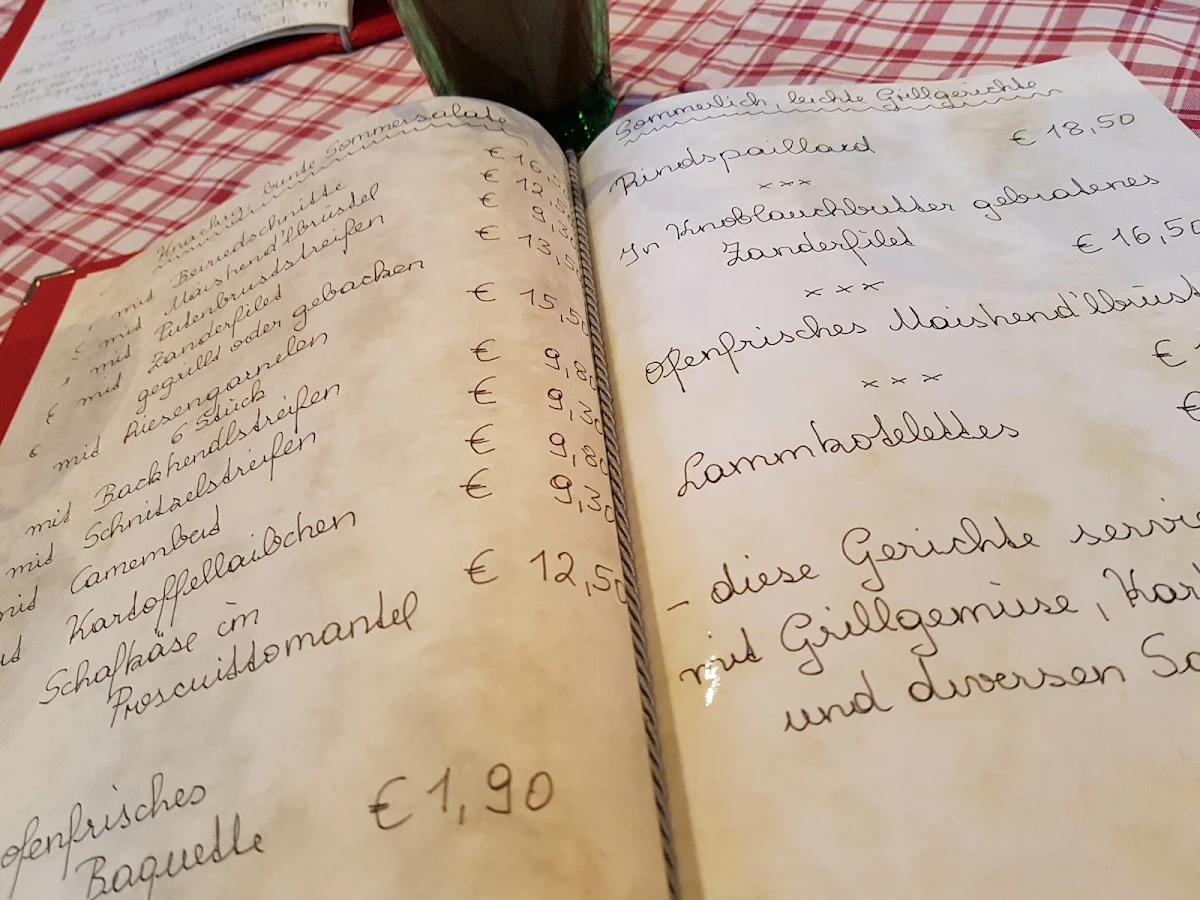 Knackig, bunte Sommersalate
mit Beiriedschnitte € 16,5
mit Maishend'lbrüstel € 12,5
mit Putenbruststreifen € 9,30
mit Zanderfilet € 13,50
gegrillt oder gebacken
mit Riesengarnelen € 15,50
6 Stück
mit Backhendlstreifen € 9,80
mit Schnitzelstreifen € 9,30
mit Camembert € 9,80
Kartoffellaibchen € 9,30
Schafkäse im € 12,50
Proscuittomantel
ofenfrisches
Baquette € 1,90
Sommerlich, leichte Grillgerichte
Rindspaillard € 18,50
xxx
In Knoblauchbutter gebratenes
Zanderfilet € 16,50
xxx
ofenfrisches Maishend'lbrüst
€ 1
xxx
€
Lammkotelettes
- diese Gerichte servie
mit Grillgemüse, Kart
und diversen Sa